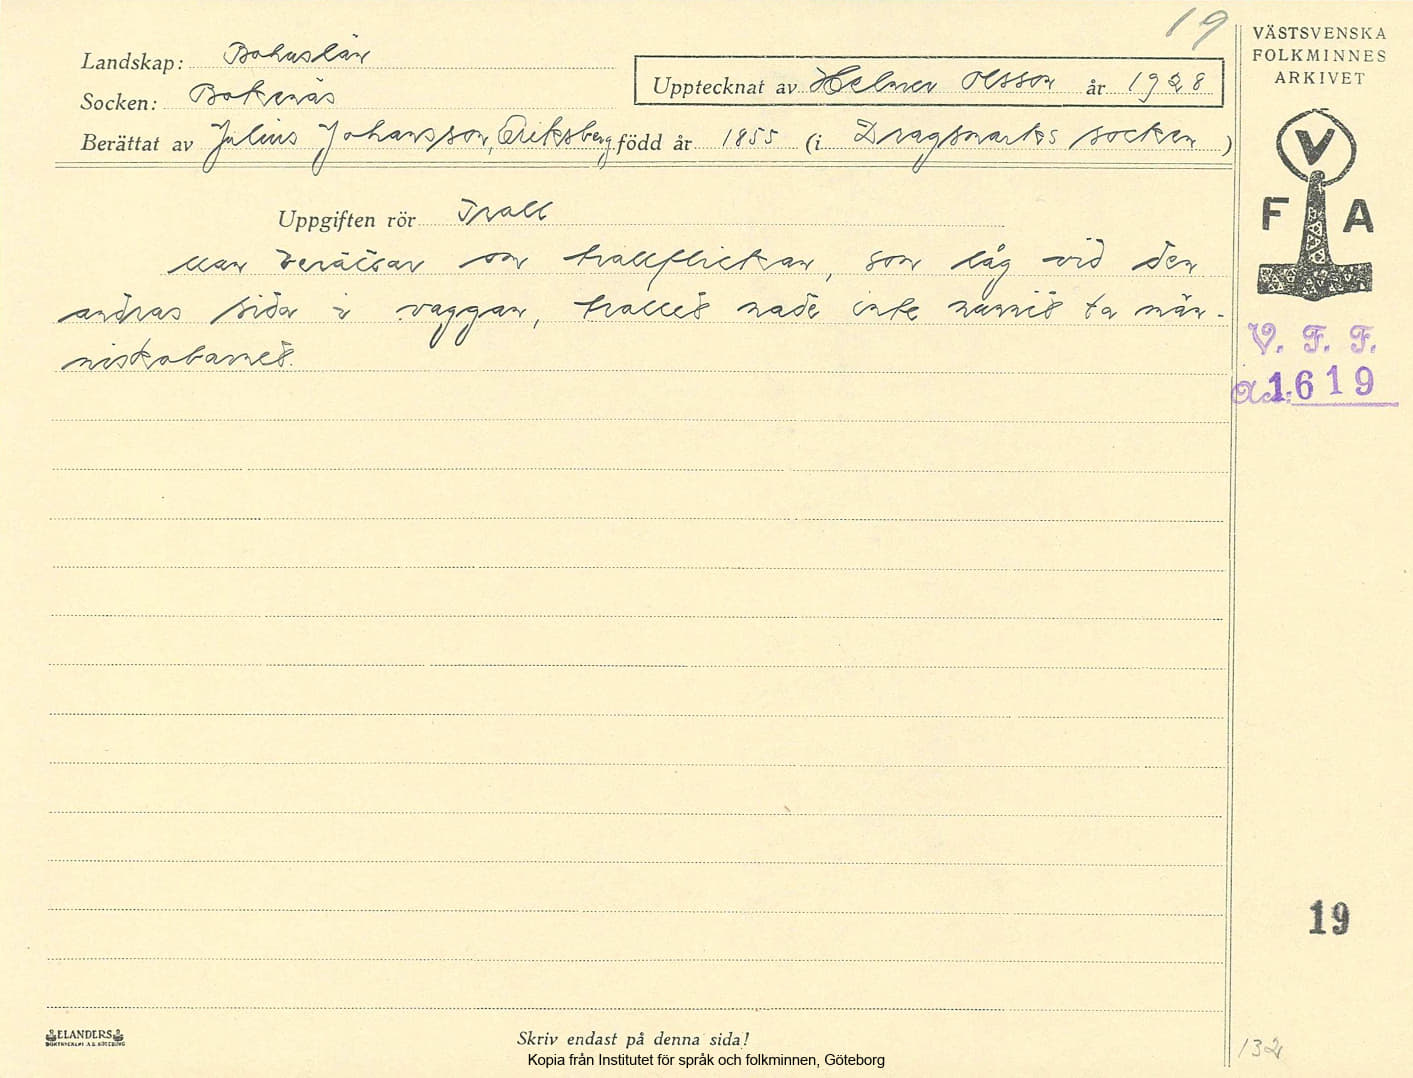 19
VÄSTSVENSKA
FOLKMINNES
ARKIVET
Landskap: Bohuslän
Socken: Bokenäs
Upptecknat av Helmer Olsson år 1928
Berättat av Julius Johansson, Eriksberg född år 1855 (i Dragsmarks socken)
V
F A
Uppgiften rör Troll
Man berättar om trollflickan, som låg vid den
andras sida i vaggan, trollet hade inte hunnit ta män-
niskobarnet.
V. F. F.
1619
19
ELANDERS
BOKTRYCKERI A.B. GÖTEBORG
Skriv endast på denna sida!
Kopia från Institutet för språk och folkminnen, Göteborg
132